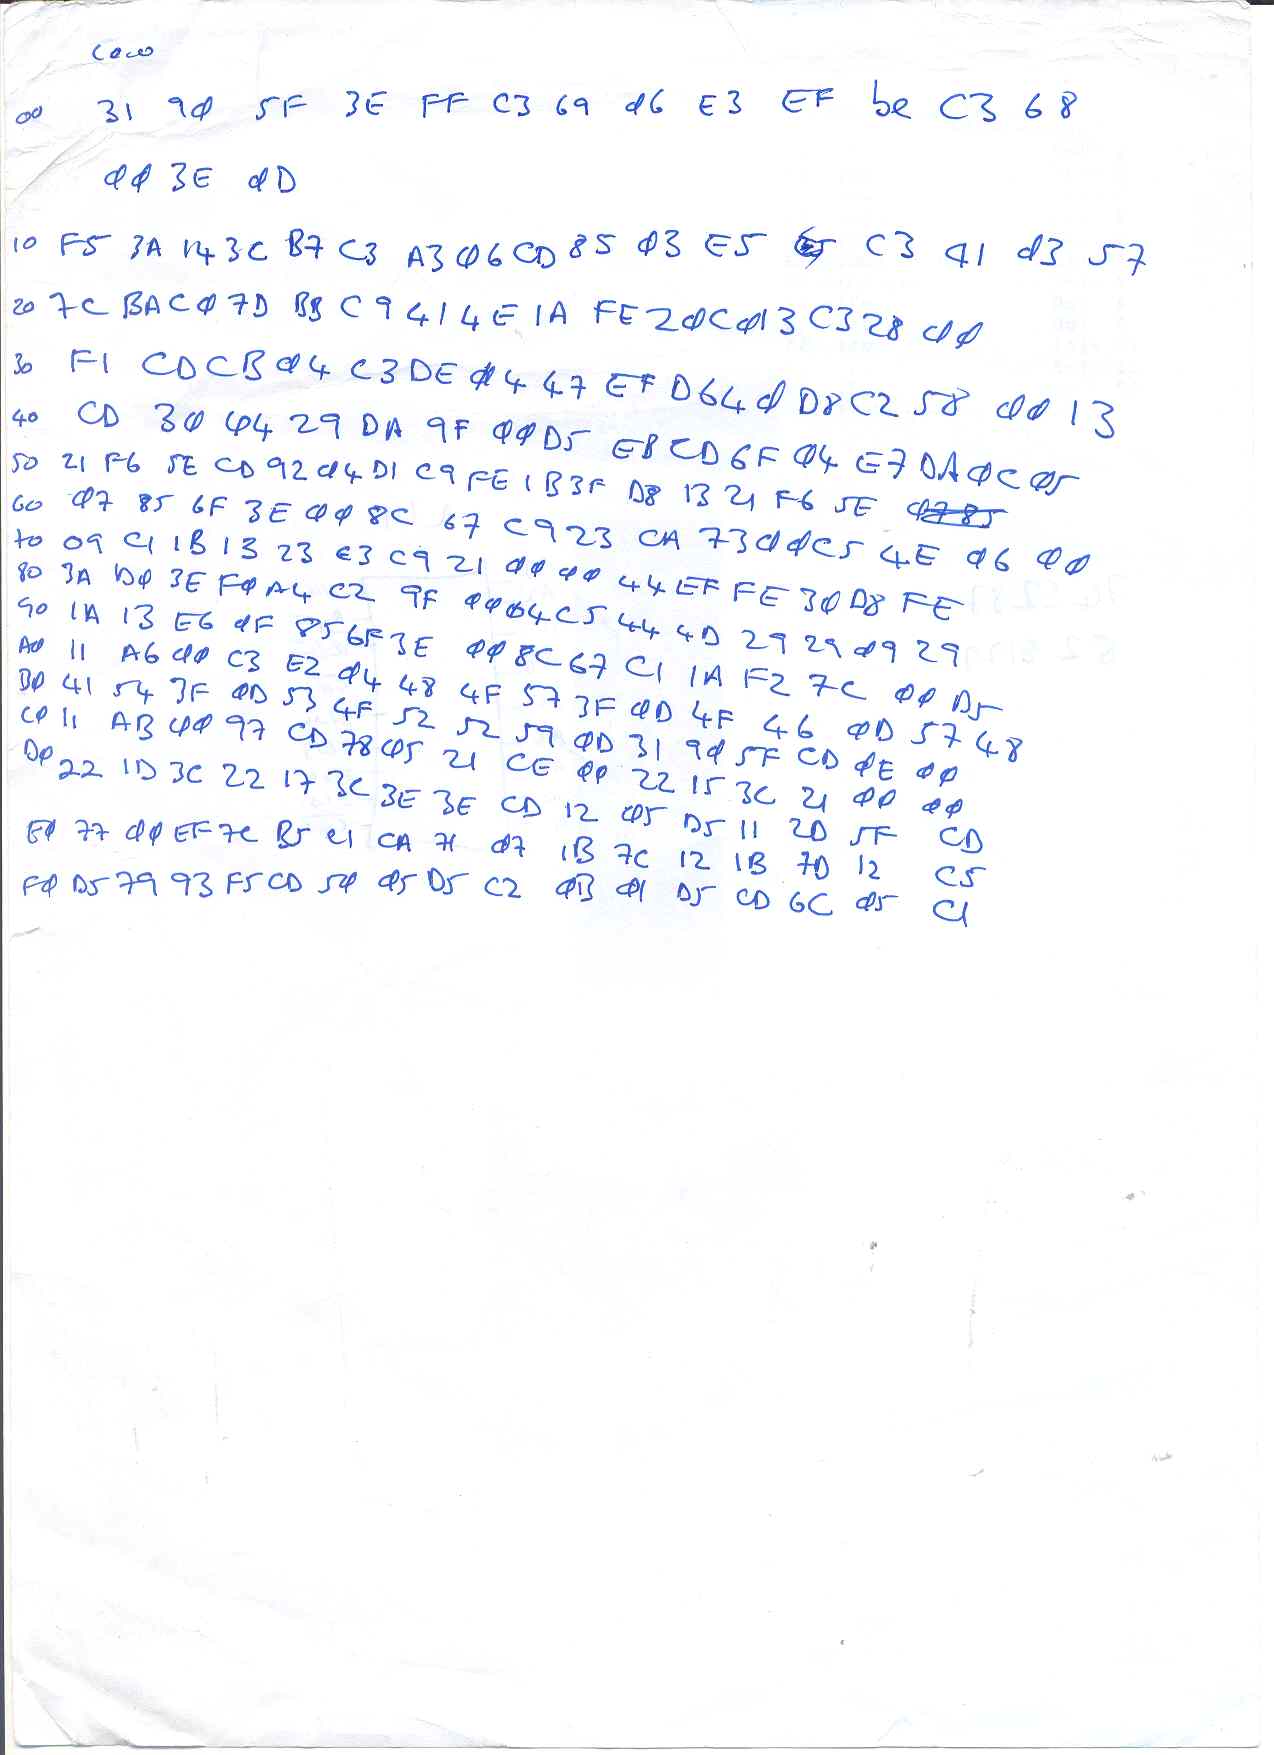 00 31 90 5F 3E FF C3 69 06 E3 EF be C3 68
00 3E 0D
10 F5 3A 14 3C B7 C3 A3 06 CD 85 03 E5 C3 41 03 57
20 7C BA C0 7D BB C9 41 4E 1A FE 20 C0 13 C3 28 00
30 F1 CD CB 04 C3 DE 04 47 EF D6 40 D8 C2 58 00 13
40 CD 30 04 29 DA 9F 00 D5 EB CD 6F 04 E7 DA 0C 05
50 21 F6 5E CD 92 04 D1 C9 FE 1B 3F D8 13 21 F6 5E
60 07 85 6F 3E 00 8C 67 C9 23 CA 73 00 C5 4E 06 00
70 09 C1 1B 13 23 E3 C9 21 00 00 44 EF FE 30 D8 FE
80 3A D0 3E F0 A4 C2 9F 00 04 C5 44 4D 29 29 09 29
90 1A 13 E6 0F 85 6F 3E 00 8C 67 C1 1A F2 7C 00 D5
A0 11 A6 00 C3 E2 04 48 4F 57 3F 0D 4F 46 0D 57 48
B0 41 54 3F 0D 53 4F 52 52 59 0D 31 90 5F CD 0E 00
C0 11 AB 00 97 CD 78 05 21 CE 00 22 15 3C 21 00 00
D0 22 1D 3C 22 17 3C 3E 3E CD 12 05 D5 11 2D 5F CD
E0 77 00 EF 7C B5 C1 CA 71 07 1B 7C 12 1B 7D 12 C5
F0 D5 79 93 F5 CD 54 05 D5 C2 0B 01 D5 CD 6C 05 C1